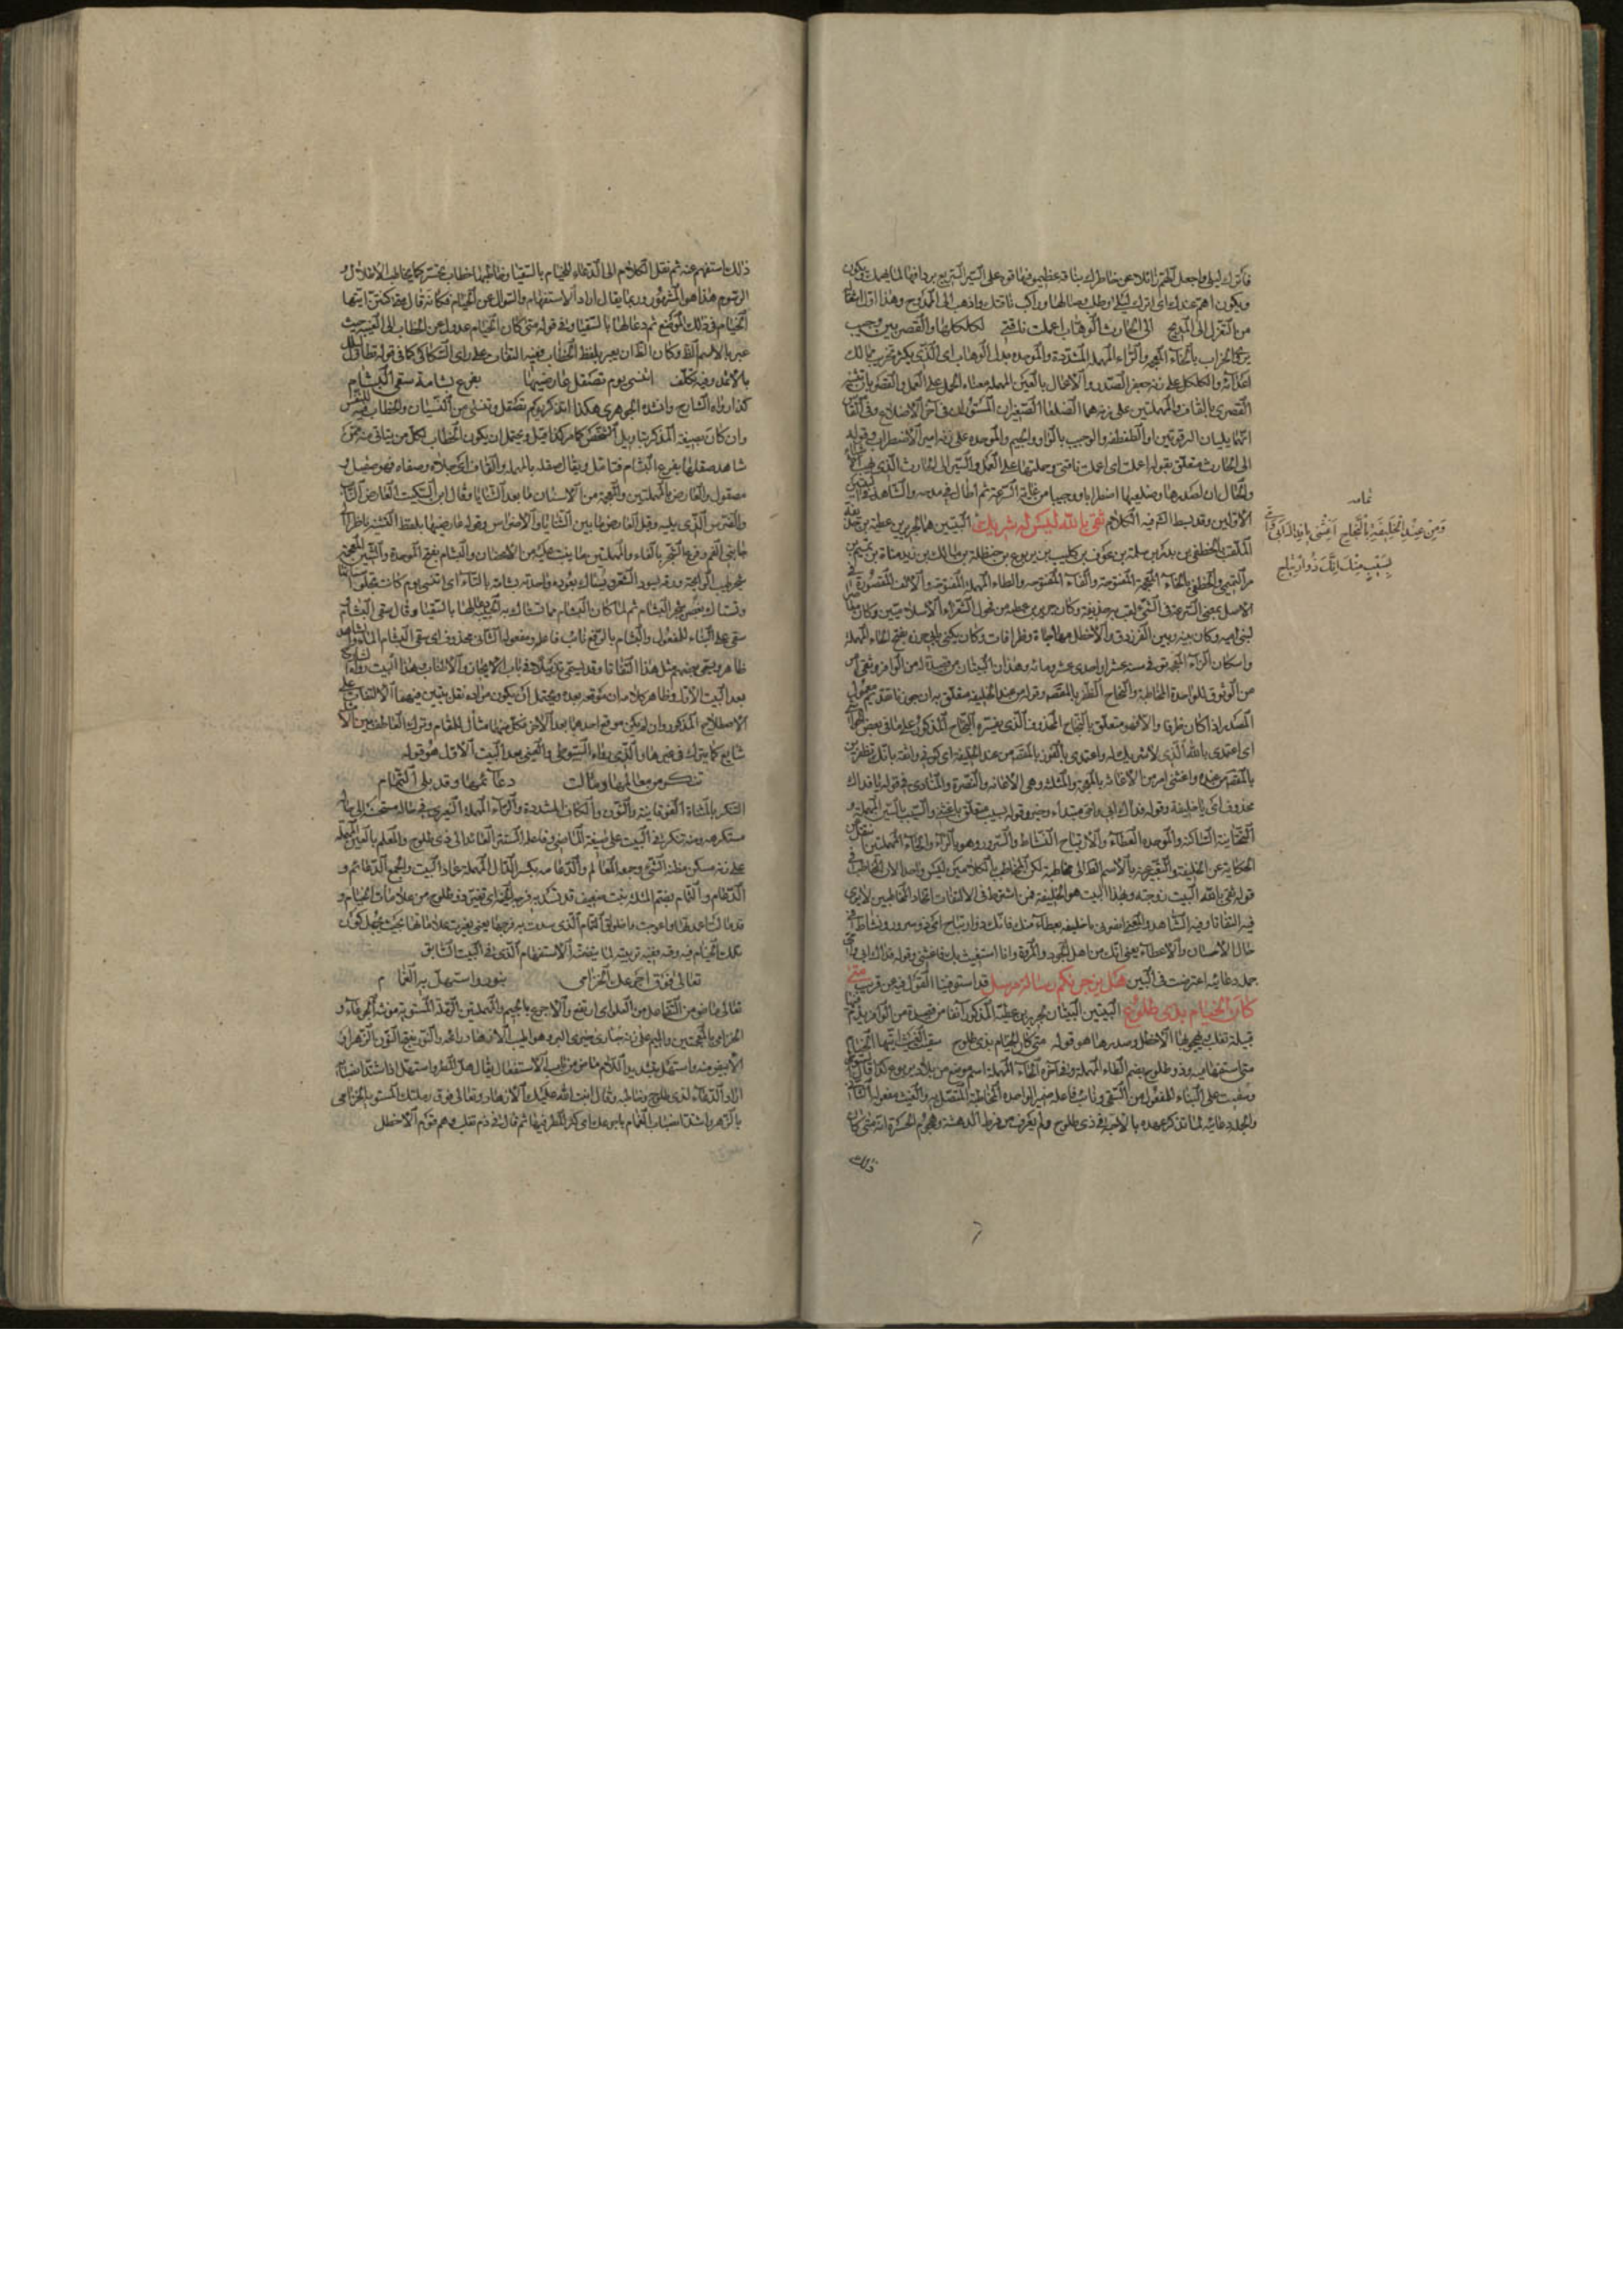 فاترك ليلى واجعل الهم زائلا عن خاطرك بناقة عظيمة
ويكون اهم عندك اى اترك ليلى وطلب وصالها واركب ناقتك واذهب الى الممدوح وهذا
من التغزل الى المديح الى الحارث الوهاب اعملت ناقتى لكلكلها والقصريين وجيب
يروى الحراب بالحاء المهملة والراء المهملة المشددة والموحدة بدل الوهاب اى الذى يكثر
اعدائه والكلكل على زنة جعفر الصدر والاعمال بالعين المهملة معناه الحمل على العمل والقصريان تثنية
القصرى بالقاف والمهملتين على زنة هما الضلعان الصغيران المستوران فى آخر الاضلاع وفى
انهما يليان الترقوتين او الطفطفة والوجيب بالواو والجيم والموحدة على زنة امير الاضطراب وقوله
الى الحارث متعلق بقوله اعملت اى اعملت ناقتى وحملتها على العمل والسير الى الحارث الذى
والحال ان لصدرها وضلعيها اضطرابا ووجيبا من غاية السرعة ثم اطال فى مدحه والشاهد فى
الاولين وقد بسط الشرح فيه الكلام ثقى بالله ليس له شريك البيتين هما لجرير بن عطية بن
الملقب بالخطفى بن بدر بن سلمة بن عوف بن كليب بن يربوع بن حنظلة بن مالك بن زيد مناة بن تميم
مر التميمى والخطفى بالخاء المعجمة المفتوحة والفاء المفتوحة والطاء المهملة المفتوحة والالف المقصورة
الاصل بمعنى السرعة فى المشى لقب به حذيفة وكان جرير بن عطية من فحول الشعراء الاسلاميين وكان
لبنى امية وكان بينه وبين الفرزدق والاخطل مهاجاة وظرافات وكان يكنى بابى حزرة بفتح الحاء المهملة
واسكان الزاء المعجمة توفى سنة عشر او احدى عشر ومائة وهذان البيتان من قصيدة له من الوافر وثقى امر
من الوثوق للواحدة المخاطبة والنجاح الظفر بالمقصد وقوله من عند الخليفة متعلق به
المصدر اذا كان ظرفا والا فهو متعلق بالنجاح المحذوف الذى يفسره النجاح المذكور على
اى اعتمدى بالله الذى لا شريك له واعتمدى بالفوز بالمقصد من عند الخليفة اى كونى واثقة بانك تظفرين
بالمقصد من عنده واغثنى امر من الاغاثة بالمعجمة والمثلثة وهى الاعانة والنصرة والمنادى فى قوله يا فداك
محذوف اى يا خليفة وقوله فداك ابى وامى مبتدأ وخبر وقوله بسيب متعلق باغثنى والسيب بالسين المهملة و
التحتانية الساكنة والموحدة العطاء والارتياح النشاط والسرور وهو بالراء والحاء المهملتين
الحكاية عن الخليفة والتعبير عنه بالاسم الظاهر الى مخاطبته لكن المخاطب بالكلامين ليس واحدا لان المخاطب
قوله ثقى بالله البيت زوجته وبهذا البيت هو الخليفة فمن اشترط فى الالتفات اتحاد المخاطبين لا يرى
فيه التفاتا وفيه الشاهد والمعنى انصرنى يا خليفة بعطاء منك فانك ذو ارتياح اى ذو سرور ونشاط
حال الاحسان والاعطاء يعنى انك من اهل الجود والمروة وانا استغيث بك فاغثنى وقوله فداك ابى
جملة دعائية اعترضت فى البين هل يزجرنكم رسالة مرسل قد استوفينا القول فيه عن قريب متى
كان الخيام بذى طلوح البيتين البيتان لجرير بن عطية المذكور آنفا من قصيدة من الوافر
قبيلة تغلب يهجو بها الاخطل وصدرها هو قوله متى كان الخيام بذى طلوح سقيت الغيث ايتها الخيام
متى استفهامية وذو طلوح بضم الطاء المهملة وفى آخره الحاء المهملة اسم موضع من بلاد بنى يربوع كذا قال
وسقيت على البناء للمفعول من السقى ونائب فاعله ضمير الواحدة المخاطبة المتصل به والغيث مفعوله الثانى
والجملة دعائية لما تذكر عهده بالاحبة فى ذى طلوح ولم يعرف من فرط الدهشة وهجوم الحسرة انه متى كان
ذلك
تمامه
ومن عند الخليفة بالنجاح اغثنى يا فداك ابى وامى
بسيب منك انك ذو ارتياح
ذلك استفهم عنه ثم نقل الكلام الى الدعاء للخيام بالسقيا وخاطبها خطاب تحسر كما يخاطب الاطلال و
الرسوم هذا هو المشهور وربما يقال اراد الاستفهام والسؤال عن الخيام فكانه قال متى كنتن ايتها
الخيام فى ذلك الموضع ثم دعا لها بالسقيا وفى قوله متى كان الخيام عدول من الخطاب الى الغيبة حيث
عبر بالاسم الظاهر وكان الظاهر ان يعبر بلفظ الخطاب ففيه التفات على راى السكاكى كما فى قوله تطاول ليلك
بالاثمد وفيه تكلف اتنسى يوم تصقل عارضيها بفرع بشامة سقى البشام
كذا رواه الشارح وانشده الجوهرى هكذا اتذكر يوم تصقل وتنسى من النسيان والخطاب فيه للنفس
وان كان بصيغة المذكر بتاويل الشخص كما مر كذا قيل ويحتمل ان يكون الخطاب لكل من يتاتى منه
شاهد صقلها بفرع البشام فتامل ويقال صقله بالمهملة والقاف اى جلاه وصفاه فهو صقيل و
مصقول والعارض بالمهملتين والمعجمة من الاسنان ما بعد الثنايا وقال ابن السكيت العارض الناب
والضرس الذى يليه وقيل العارض ما بين الثنايا والاضراس وقوله عارضيها بلفظ التثنية ناظر الى
جانبى الفم وفرع الشجر بالفاء والمهملتين ما ينبت عليه من الاغصان والبشام بفتح الموحدة والشين المعجمة
شجر طيب الرائحة ورقه يسود الشعر ويستاك بعوده واحدته بشامة بالتاء اى اتنسى يوم كانت تصقل اسنانها
وتستاك بغصن شجر البشام ثم لما كان البشام مما تستاك به الحبيبة دعا لها بالسقيا وقال سقى البشام
سقى على البناء للمفعول والبشام بالرفع نائب فاعله ومفعوله الثانى محذوف اى سقى البشام الماء
ظاهر ويسمى بعضهم مثل هذا التفاتا وقد يسمى تذييلا فى باب الايجاز والاطناب وهذا البيت رواه الشارح
بعد البيت الاول وظاهر كلامه ان موقعه بعده ويحتمل ان يكون مراده نقل بيتين فيهما الالتفات على
الاصطلاح المذكور وان لم يكن موقع احدهما بعد الآخر فكل منهما مثال للمقام وترك العاطف بين
شايع كما يترك فى غيرها والذى رواه السيوطى والعينى بعد البيت الاول هو قوله
تنكر من معالمها ومالت دعائمها وقد بلى الثمام
التنكر بالمثناة الفوقانية والنون والكاف المشددة والراء المهملة التغير من حالة مستحسنة الى حالة
مستكرهة ومنه تنكر فى البيت على صيغة الماضى وفاعله المستتر العائد الى ذى طلوح والمعلم بالعين المهملة
على زنة مسكن مظنة الشئ وجمعه المعالم والدعامة بكسر الدال المهملة عماد البيت والجمع الدعائم و
الدعام والثمام بضم المثلثة نبت ضعيف قد تسد به فرج البيوت اى تغير ذو طلوح من علامات الخيام و
قد مالت اعمدتها واعوجت واخلولق الثمام الذى سدت به فرجها يعنى تغيرت علاماتها بحيث يجهل كون
تلك الخيام فيه وفيه تربية لما يفهمه الاستفهام الذى فى البيت السابق
تعالى فوق اجرعك الخزامى بنور واستهل به الغمام
تعالى ماض من التفاعل من العلو اى ارتفع والاجرع بالجيم والمهملتين الرملة المستوية مونثه الجرعاء و
الخزامى بالمعجمتين والميم على زنة حبارى خيرى البر وهو اطيب الازهار رائحة والنور بفتح النون الزهر او
الابيض منه واستهل بتشديد اللام ماض من باب الاستفعال يقال هل المطر واستهل اذا اشتد انصبابه
اراد الدعاء لذى طلوح وخاطبه وقال انبت الله عليك الازهار وتعالى فوق رملتك المستوية الخزامى
بالزهر واشتد انصباب الغمام باجرعك اى كثر المطر فيها ثم قال فى ذم تغلب وهم قوم الاخطل